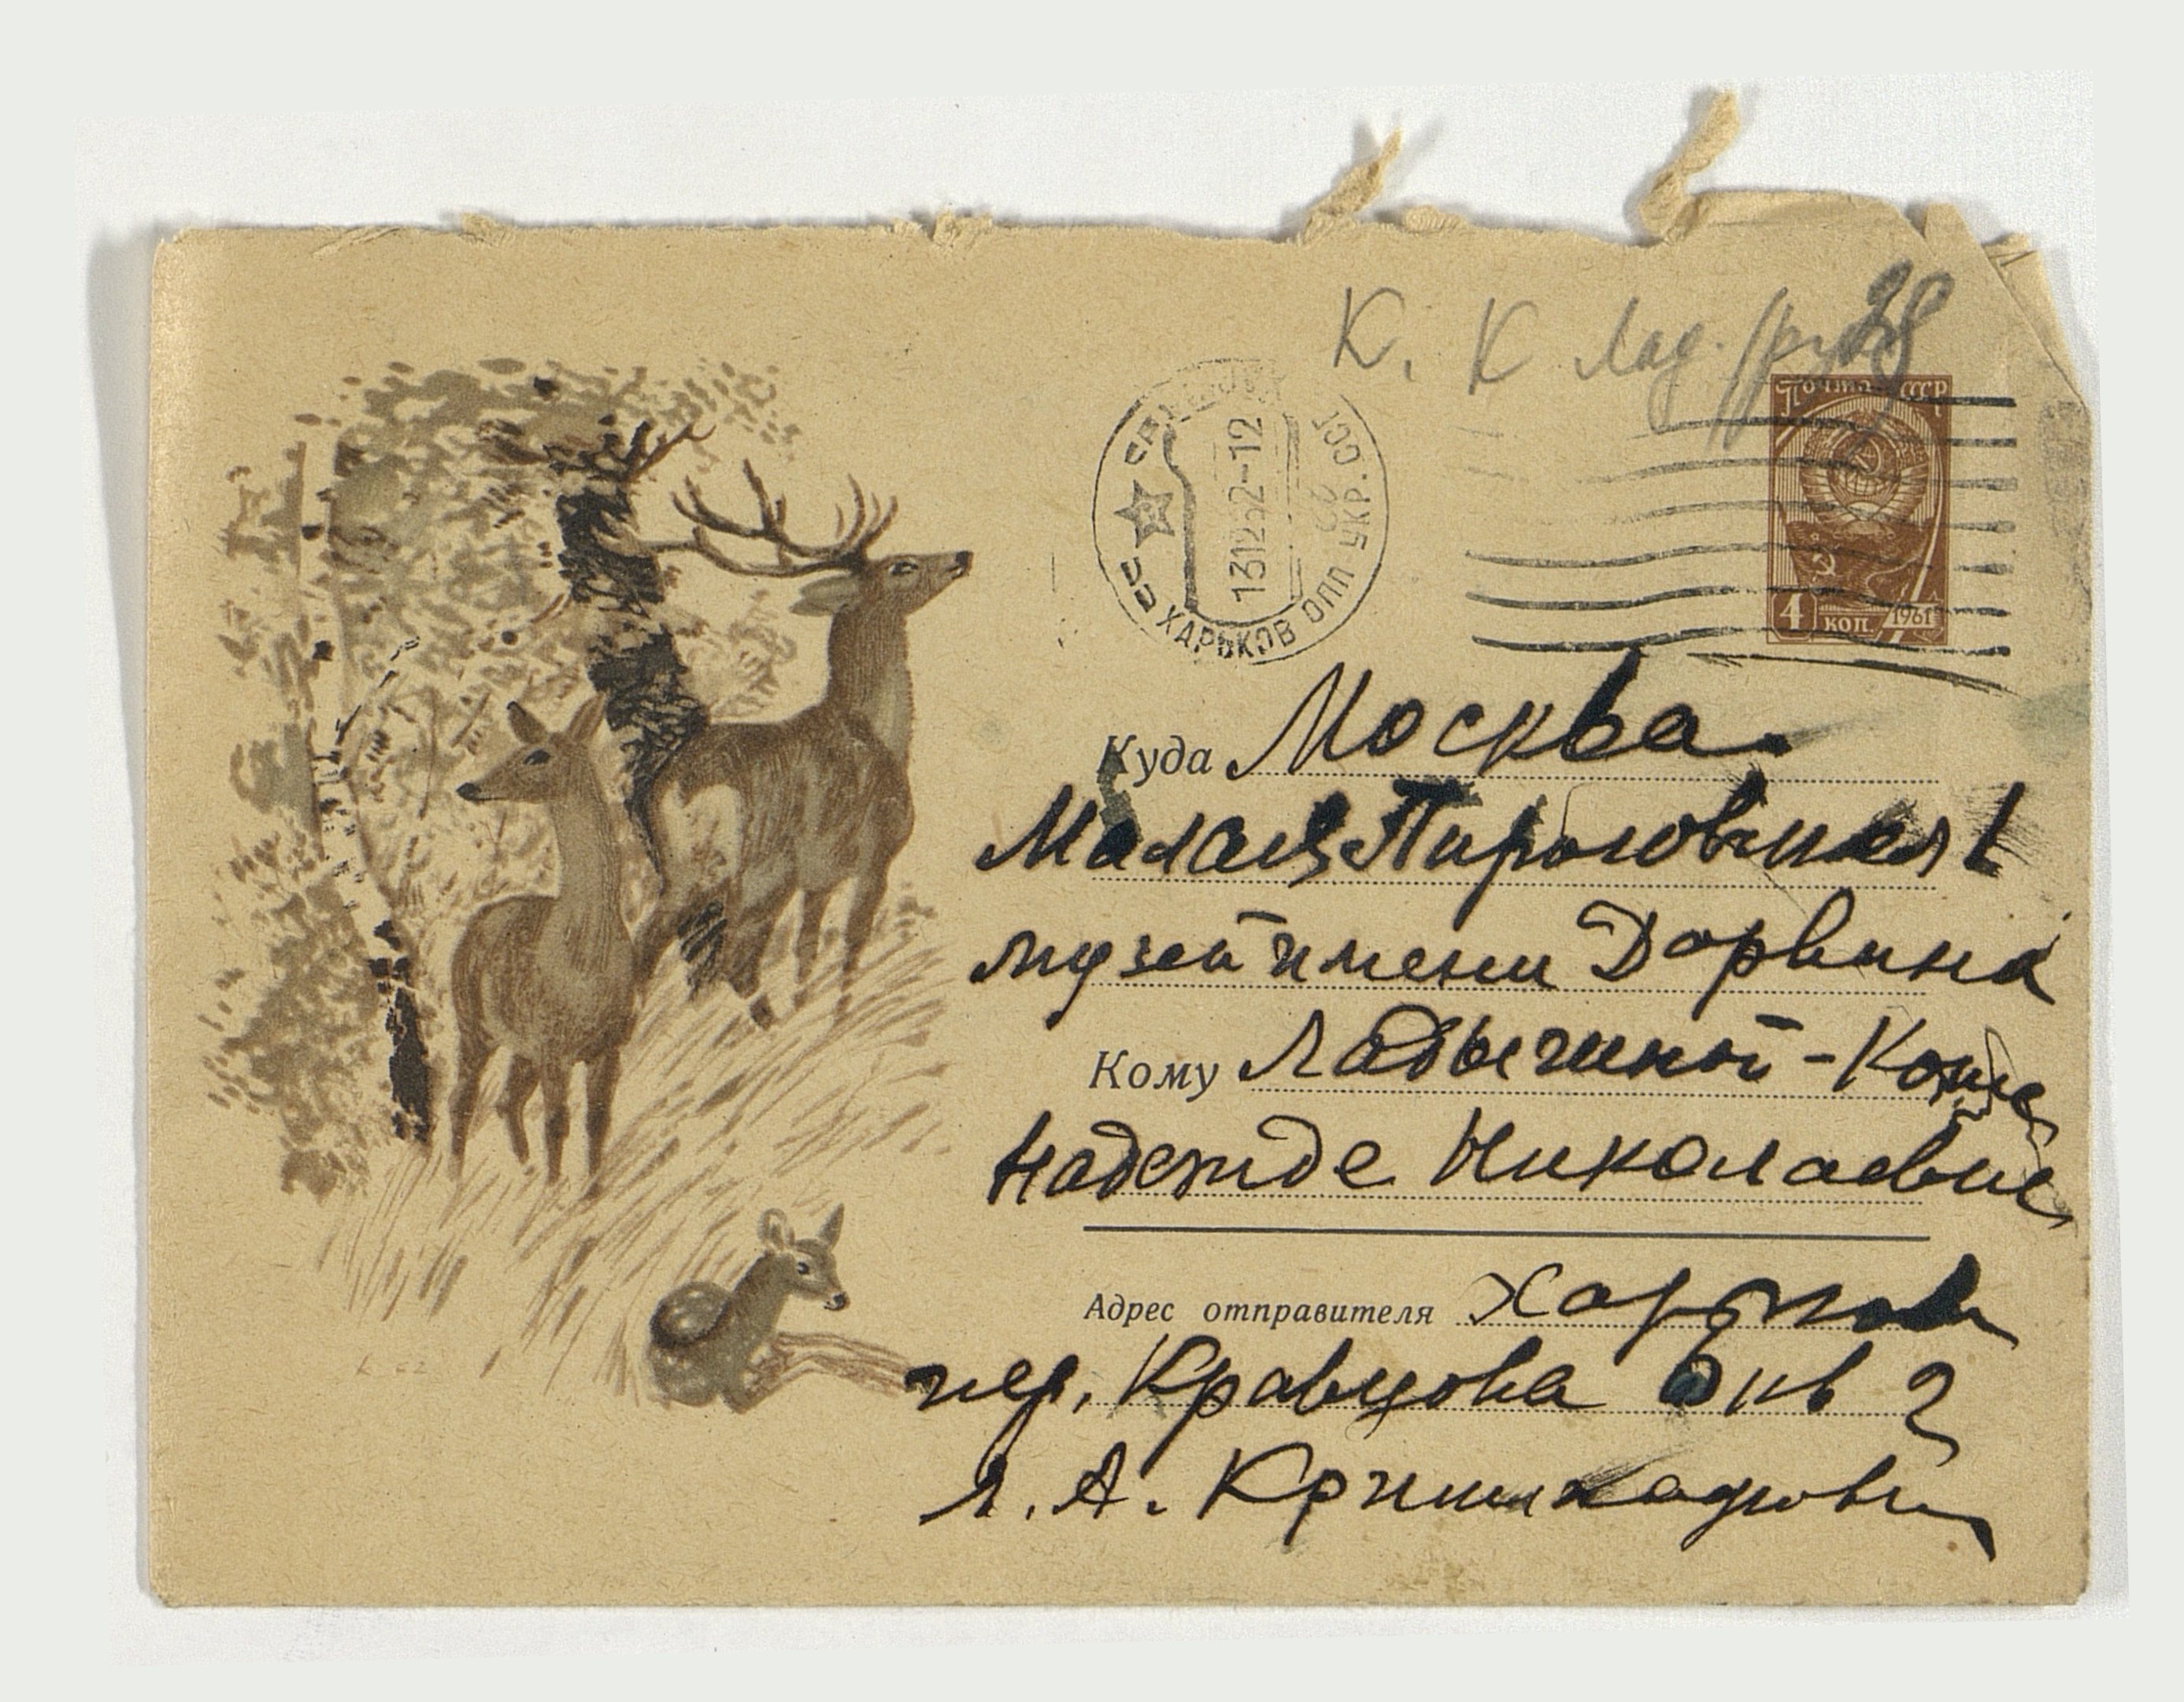 К. К Лад.
Почта СССР
13 12 62-12
ХАРЬКОВ ОПП УКР. ССР
4 коп 1961
Куда Москва.
Малая Пироговская 1
музей имени Дарвина
Кому Ладычиной-Котс
Надежде Николаевне
Адрес отправителя Харьков
пер. Кравцова кв 2
А.